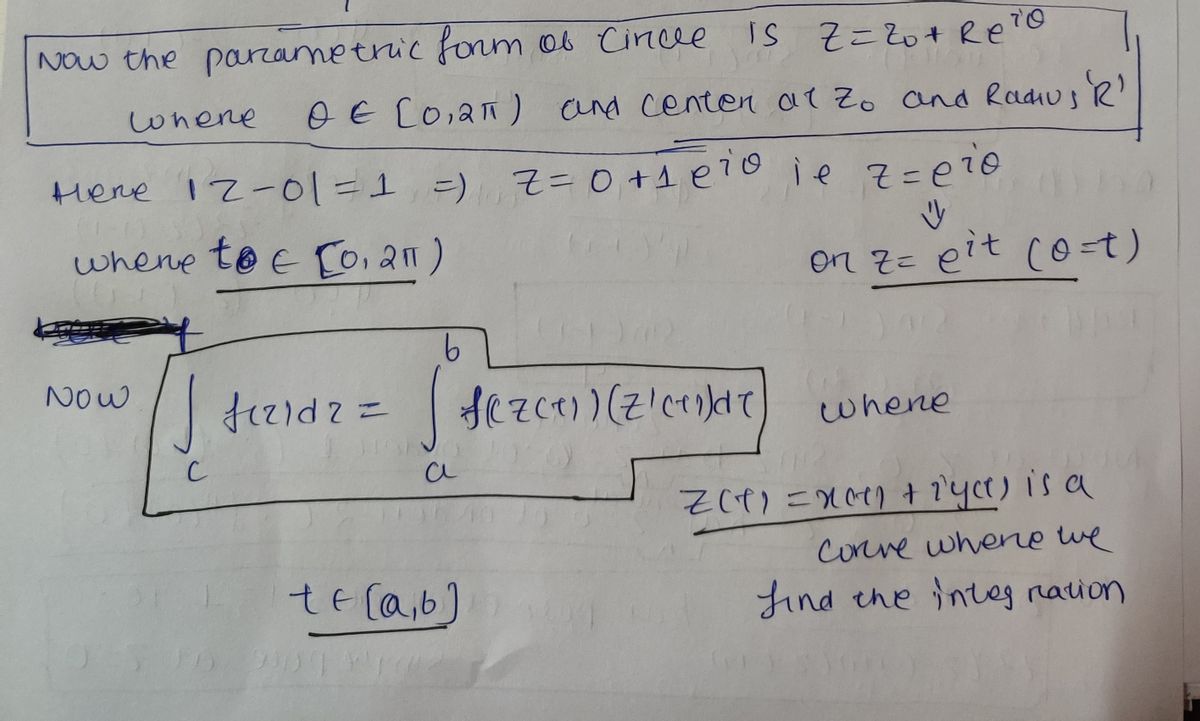 Now the parametric form of Circle is z = z₀ + Re^{iθ}
where θ ∈ [0, 2π) and center at z₀ and Radius 'R'
Here |z-0| = 1 ⇒ z = 0 + 1 e^{iθ} ie z = e^{iθ}
⇓
where t ∈ [0, 2π) or z = e^{it} (θ=t)
Now ∫_C f(z)dz = ∫_a^b f(z(t))(z'(t))dt where
z(t) = x(t) + iy(t) is a
curve where we
t ∈ [a,b] find the integration